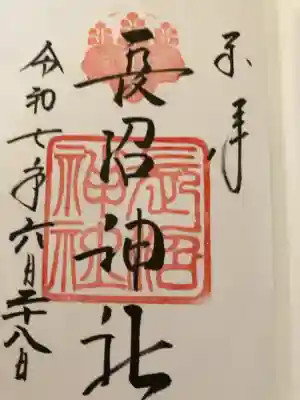 奉拝
長沼神社
長沼
神社
令和七年六月二十八日